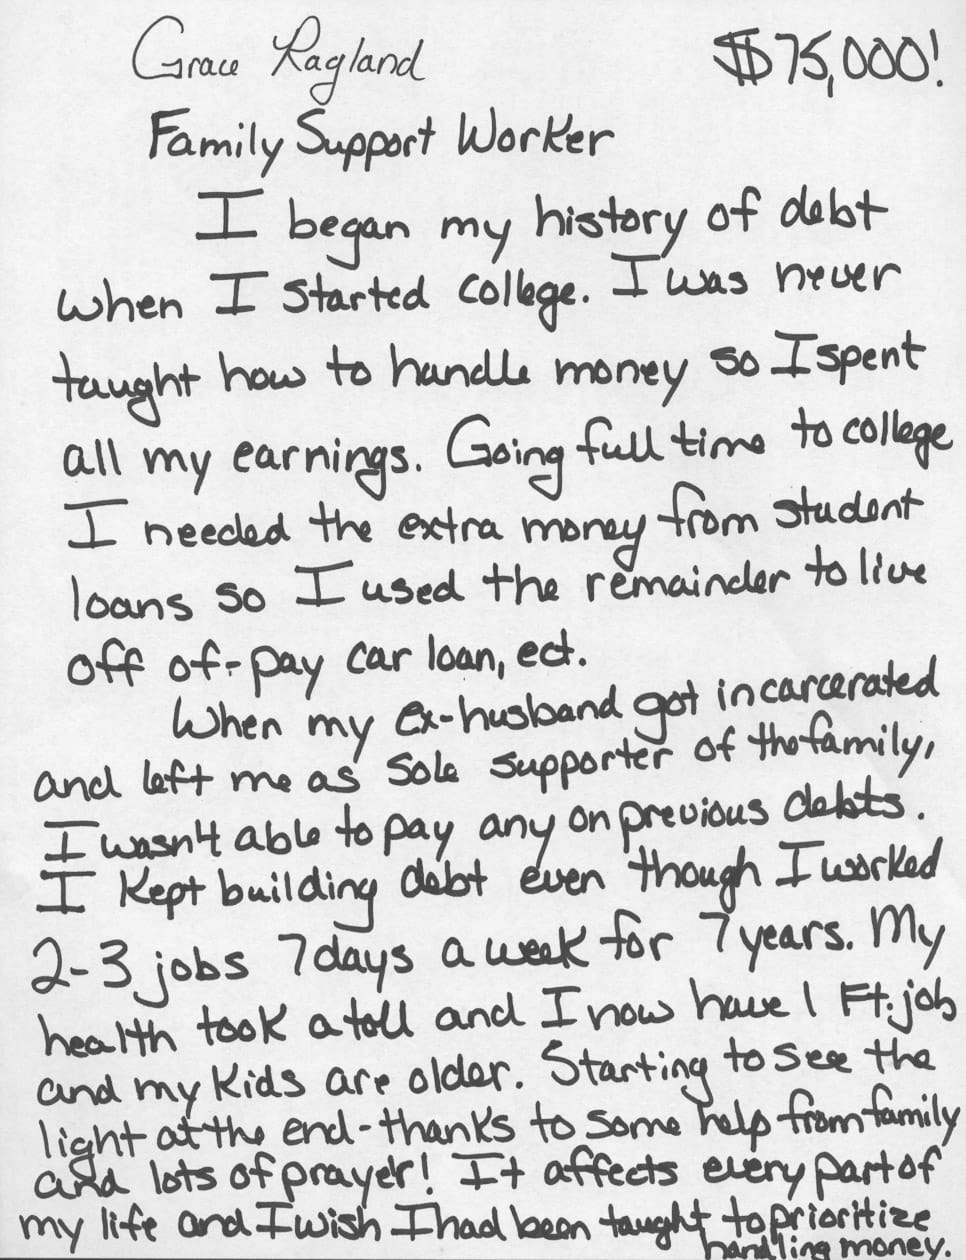 Grace Ragland $75,000!
Family Support Worker
I began my history of debt
when I started college. I was never
taught how to handle money so I spent
all my earnings. Going full time to college
I needed the extra money from student
loans so I used the remainder to live
off of - pay car loan, ect.
When my ex-husband got incarcerated
and left me as sole supporter of the family,
I wasn't able to pay any on previous debts.
I kept building debt even though I worked
2-3 jobs 7 days a week for 7 years. My
health took a toll and I now have 1 Ft. job
and my kids are older. Starting to see the
light at the end - thanks to some help from family
and lots of prayer! It affects every part of
my life and I wish I had been taught to prioritize
handling money.